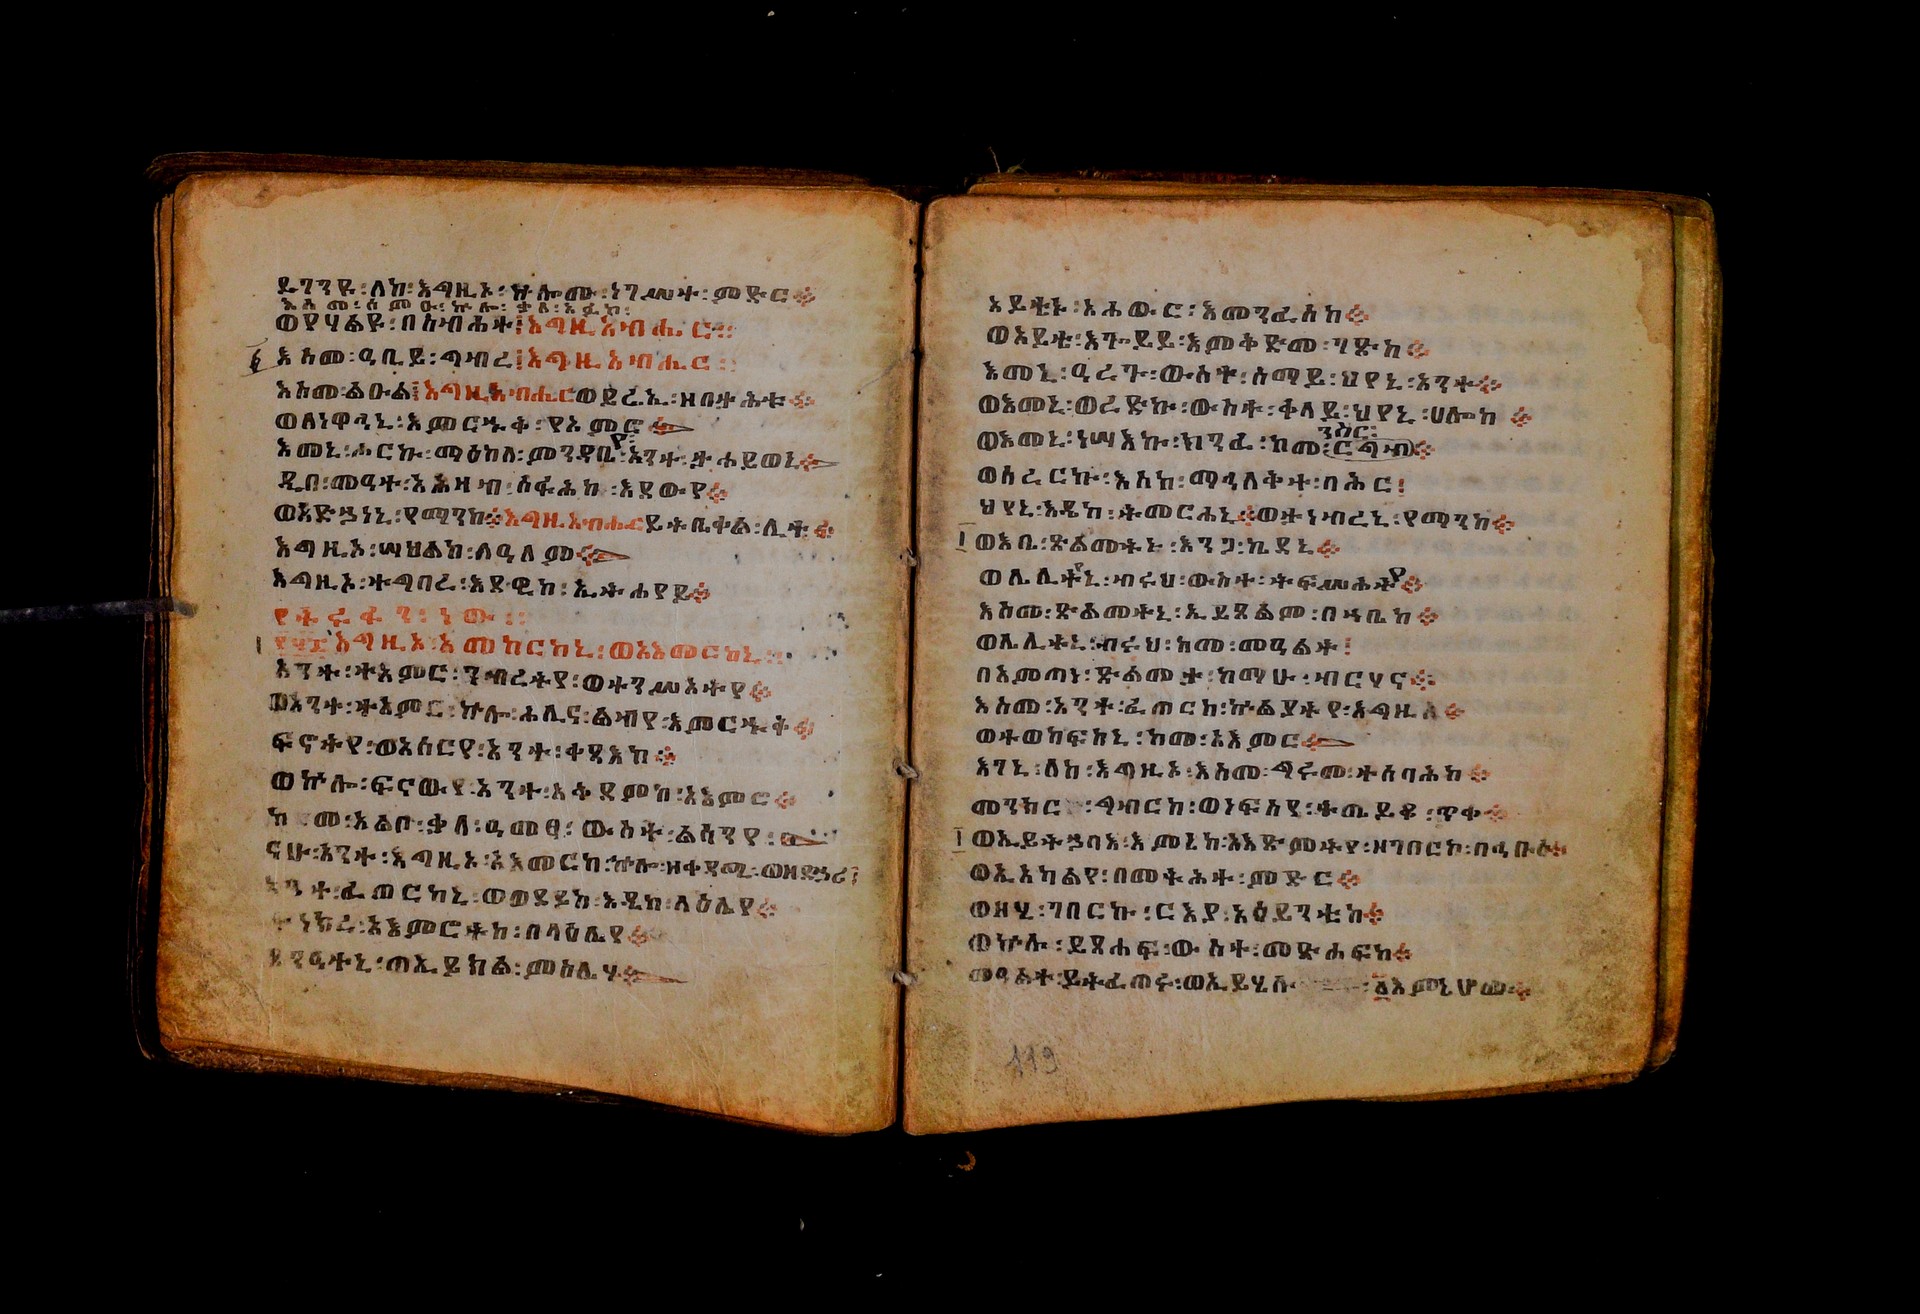 ይገንዩ፡ለከ፡እግዚኦ፡ኵሎሙ፡ነገሥተ፡ምድር፨
እስመ፡ሰምዑ፡ኵሎ፡ቃለ፡አፉከ፡
ወየሃልዩ፡በስብሐተ፤እግዚአብሔር፨
እስመ፡ዓቢይ፡ግብረ፤እግዚአብሔር፨
እስመ፡ልዑል፤እግዚአብሔርወይሬኢ፡ዘበታሕቱ፨
ወለነዋኂኒ፡እምርኁቅ፡የአምር፨
እመኒ፡ሖርኩ፡ማዕከለ፡ምንዳቤየ፡አንተ፡ታሐይወኒ፨
ዲበ፡መዓተ፡አሕዛብ፡ሰፋሕከ፡እደውየ፨
ወአድኃነኒ፡የማንከ፨እግዚአብሔርይትቤቀል፡ሊተ፨
እግዚኦ፡ሣህልከ፡ለዓለም፨
እግዚኦ፡ተግባረ፡እደዊከ፡ኢትሐየይ፨
እግዚኦ፡አመከርከኒ፡ወአእመርከኒ፨
አንተ፡ተአምር፡ንብረትየ፡ወተንሥኦትየ፨
ወአንተ፡ተአምር፡ኵሎ፡ሐሊና፡ልብየ፡እምርኁቅ፨
ፍኖትየ፡ወአሰርየ፡አንተ፡ቀጻእከ፨
ወኵሎ፡ፍናውየ፡አንተ፡አቅደምከ፡አእምሮ፨
ከመ፡አልቦ፡ቃለ፡ዓመፃ፡ውስተ፡ልሳንየ፡
ናሁ፡አንተ፡እግዚኦ፡አእመርከ፡ኵሎ፡ዘቀዳሚ፡ወዘድኅሪ፤
አንተ፡ፈጠርከኒ፡ወወደይከ፡እዴከ፡ላዕሌየ፨
ተነክረ፡አእምሮትከ፡በላዕሌየ፨
ጸንዓተኒ፡ጠኢይክል፡ምስሌሃ፨
አይቴኑ፡አሐውር፡እመንፈስከ፨
ወአይቴ፡እጐይይ፡እምቅድመ፡ገጽከ፨
እመኒ፡ዓረጉ፡ውስተ፡ሰማይ፡ህየኒ፡አንተ፨
ወእመኒ፡ወረድኩ፡ውስተ፡ቀላይ፡ህየኒ፡ሀሎከ፨
ንስር፡
ወእመኒ፡ነሣእኩ፡ክንፈ፡ከመ፡ርግብ፨
ወሰረርኩ፡እስከ፡ማኅለቅተ፡በሕር፤
ህየኒ፡እዴከ፡ትመርሐኒ፨ወታነብረኒ፡የማንከ፨
ወእቤ፡ጽልመትኑ፡እንጋ፡ኬደኒ፨
ወሌሊትኒ፡ብሩህ፡ውስተ፡ትፍሥሕትየ፨
እስመ፡ጽልመትኒ፡ኢይጸልም፡በኀቤከ፨
ወሌሊትኒ፡ብሩህ፡ከመ፡መዓልት፤
በአምጣነ፡ጽልመታ፡ከማሁ፡ብርሃና፨
እስመ፡አንተ፡ፈጠርከ፡ኵልያትየ፡እግዚኦ፨
ወተወከፍከኒ፡ከመ፡እእምር፨
እገኒ፡ለከ፡እግዚኦ፡እስመ፡ግሩመ፡ተሰባሕከ፨
መንክር፡ግብርከ፡ወነፍስየ፡ትጤይቆ፡ጥቀ፨
ወኢይትኃባእ፡እምኔከ፡አእጽምትየ፡ዘገበርከ፡በኅቡዕ፨
ወኢአካልየ፡በመትሕተ፡ምድር፨
ወዘሂ፡ገበርኩ፡ርእያ፡አዕይንቲከ፨
ወኵሉ፡ይጸሐፍ፡ውስተ፡መጽሐፍከ፨
መዓልተ፡ይትፈጠሩ፡ወኢይሄሉ፡፩እምኔሆሙ፨
119